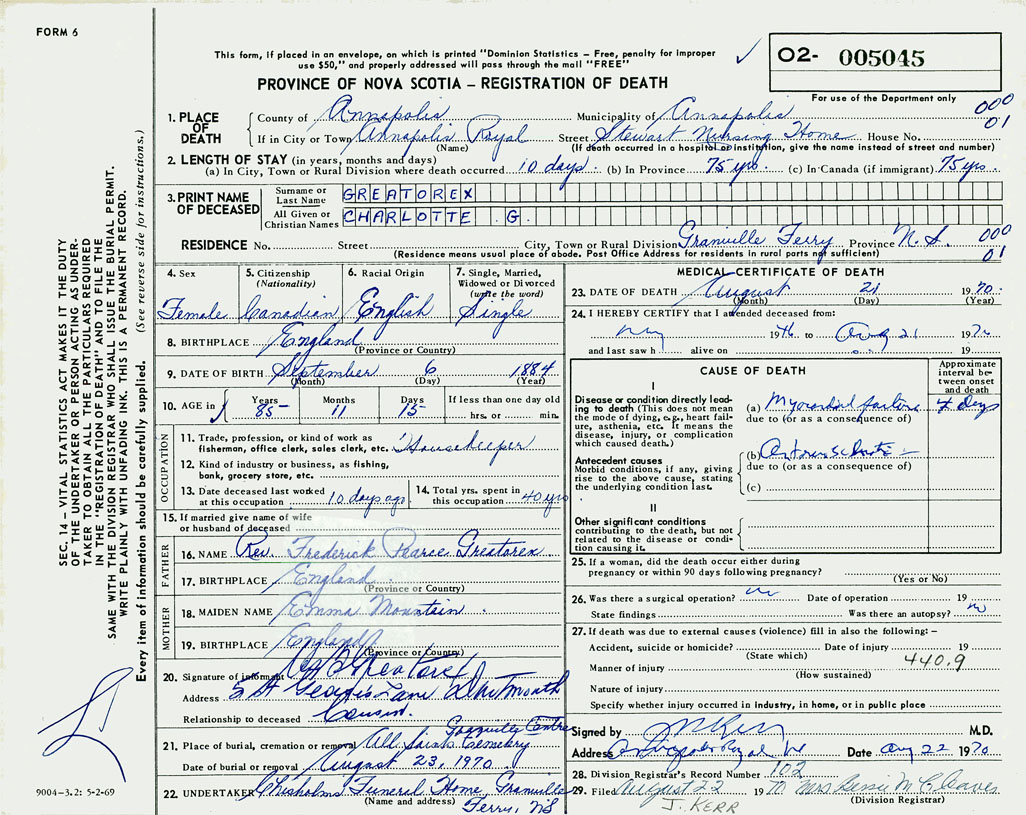 FORM 6
This form, if placed in an envelope, on which is printed "Dominion Statistics – Free, penalty for improper
use $50," and properly addressed will pass through the mail "FREE"
PROVINCE OF NOVA SCOTIA – REGISTRATION OF DEATH
O2- 005045
For use of the Department only
000
01
SEC. 14 – VITAL STATISTICS ACT MAKES IT THE DUTY
OF THE UNDERTAKER OR PERSON ACTING AS UNDER-
TAKER TO OBTAIN ALL THE PARTICULARS REQUIRED
IN THE "REGISTRATION OF DEATH" AND TO FILE THE
SAME WITH THE DIVISION REGISTRAR WHO SHALL ISSUE THE BURIAL PERMIT.
WRITE PLAINLY WITH UNFADING INK. THIS IS A PERMANENT RECORD.
Every item of information should be carefully supplied. (See reverse side for instructions.)
1. PLACE OF DEATH
County of Annapolis Municipality of Annapolis
If in City or Town Annapolis Royal Street Stewart Nursing Home House No.
(Name) (If death occurred in a hospital or institution, give the name instead of street and number)
2. LENGTH OF STAY (in years, months and days)
(a) In City, Town or Rural Division where death occurred 10 days. (b) In Province 75 yrs. (c) In Canada (if immigrant) 75 yrs.
3. PRINT NAME OF DECEASED
Surname or Last Name GREATOREX
All Given or Christian Names CHARLOTTE G.
RESIDENCE No. Street City, Town or Rural Division Granville Ferry Province N.S. 000
(Residence means usual place of abode. Post Office Address for residents in rural parts not sufficient) 01
4. Sex Female
5. Citizenship (Nationality) Canadian
6. Racial Origin English
7. Single, Married, Widowed or Divorced (write the word) Single
8. BIRTHPLACE England
(Province or Country)
9. DATE OF BIRTH September 6 1884
(Month) (Day) (Year)
10. AGE in Years 85 Months 11 Days 15 If less than one day old hrs. or min.
OCCUPATION
11. Trade, profession, or kind of work as
fisherman, office clerk, sales clerk, etc. Housekeeper
12. Kind of industry or business, as fishing,
bank, grocery store, etc.
13. Date deceased last worked at this occupation 10 days ago
14. Total yrs. spent in this occupation 40 yrs
15. If married give name of wife
or husband of deceased
FATHER
16. NAME Rev. Frederick Pearce Greatorex
17. BIRTHPLACE England
(Province or Country)
MOTHER
18. MAIDEN NAME Emma Mountain
19. BIRTHPLACE England
(Province or Country)
20. Signature of informant Greatorex
Address 5 St Georges Lane Dartmouth
Relationship to deceased Cousin.
Granville Centre
21. Place of burial, cremation or removal All Saints Cemetery
Date of burial or removal August 23, 1970
22. UNDERTAKER Chisholms Funeral Home, Granville
(Name and address) Ferry, NS
9004–3.2: 5-2-69
MEDICAL CERTIFICATE OF DEATH
23. DATE OF DEATH August 21 1970
(Month) (Day) (Year)
24. I HEREBY CERTIFY that I attended deceased from:
19 to Aug 21 1970
and last saw h alive on 19
CAUSE OF DEATH
Approximate interval between onset and death
I
Disease or condition directly lead-
ing to death (This does not mean
the mode of dying, e.g., heart fail-
ure, asthenia, etc. It means the
disease, injury, or complication
which caused death.)
(a) Myocardial 4 days
due to (or as a consequence of)
Antecedent causes
Morbid conditions, if any, giving
rise to the above cause, stating
the underlying condition last.
(b)
due to (or as a consequence of)
(c)
II
Other significant conditions
contributing to the death, but not
related to the disease or condi-
tion causing it.
25. If a woman, did the death occur either during
pregnancy or within 90 days following pregnancy?
(Yes or No)
26. Was there a surgical operation? no Date of operation 19
State findings Was there an autopsy? no
27. If death was due to external causes (violence) fill in also the following: –
Accident, suicide or homicide? Date of injury 19
(State which)
440.9
Manner of injury
(How sustained)
Nature of injury
Specify whether injury occurred in industry, in home, or in public place
Signed by Kerr M.D.
Address Annapolis Royal NS Date Aug 22 1970
28. Division Registrar's Record Number 102
29. Filed August 22 1970 Mrs Bessie M. Cleaves
(Division Registrar)
J. KERR